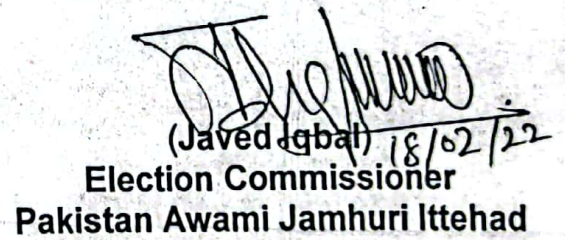 (Javed Iqbal) 18/02/22
Election Commissioner
Pakistan Awami Jamhuri Ittehad